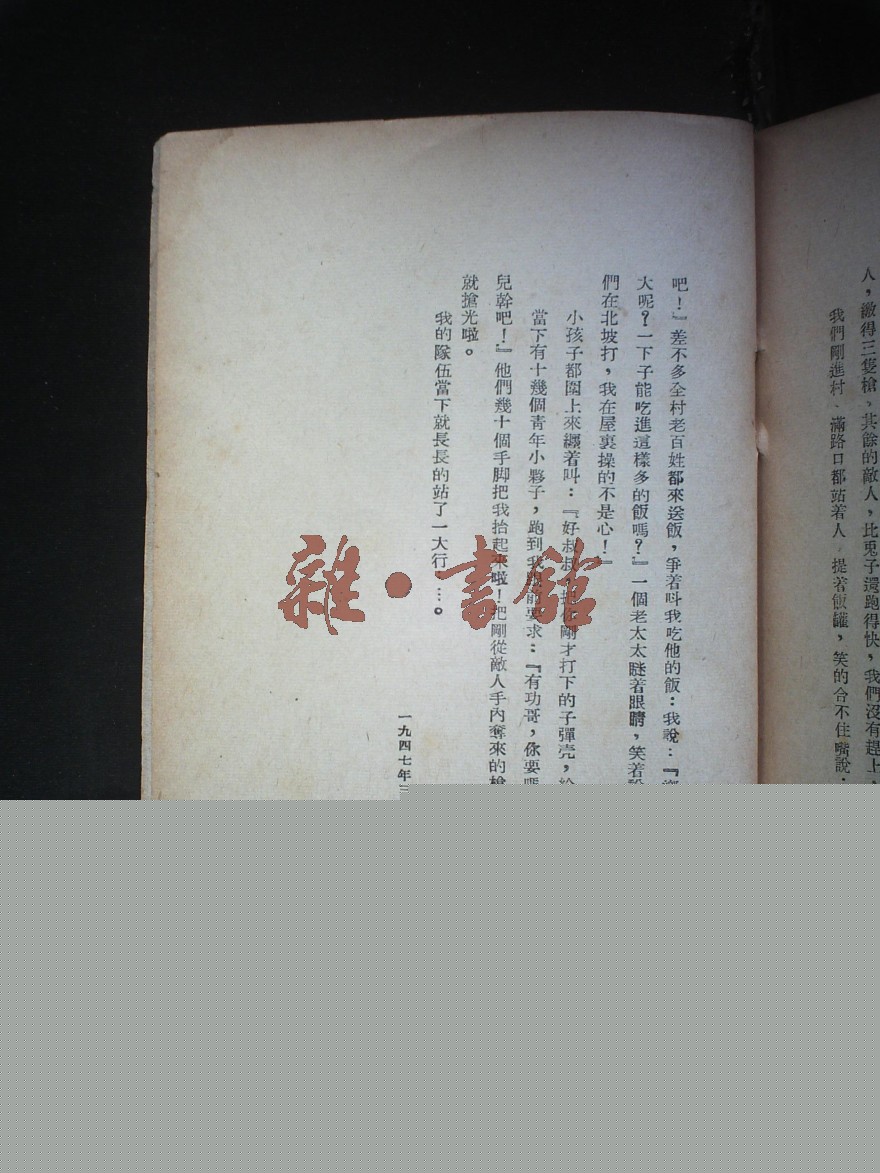 人，繳得三隻槍、其餘的敵人，比兎子還跑得快，我們沒有趕上，
我們剛進村、滿路口都站着人 提着飯罐，笑的合不住嘴說：
吧！』差不多全村老百姓都來送飯，爭着叫我吃他的飯：我說：『
大呢？一下子能吃進這樣多的飯嗎？』一個老太太瞇着眼睛，笑着說
們在北坡打，我在屋裏操的不是心！』
小孩子都圍上來纒着叫：『好叔叔，把你剛才打下的子彈壳，給
當下有十幾個青年小夥子，跑到我跟前要求：『有功哥，你要嗎
兒幹吧！』他們幾十個手脚把我抬起來啦！把剛從敵人手內奪來的槍
就搶光啦。
我的隊伍當下就長長的站了一大行……。
一九四七年三
雜·書館